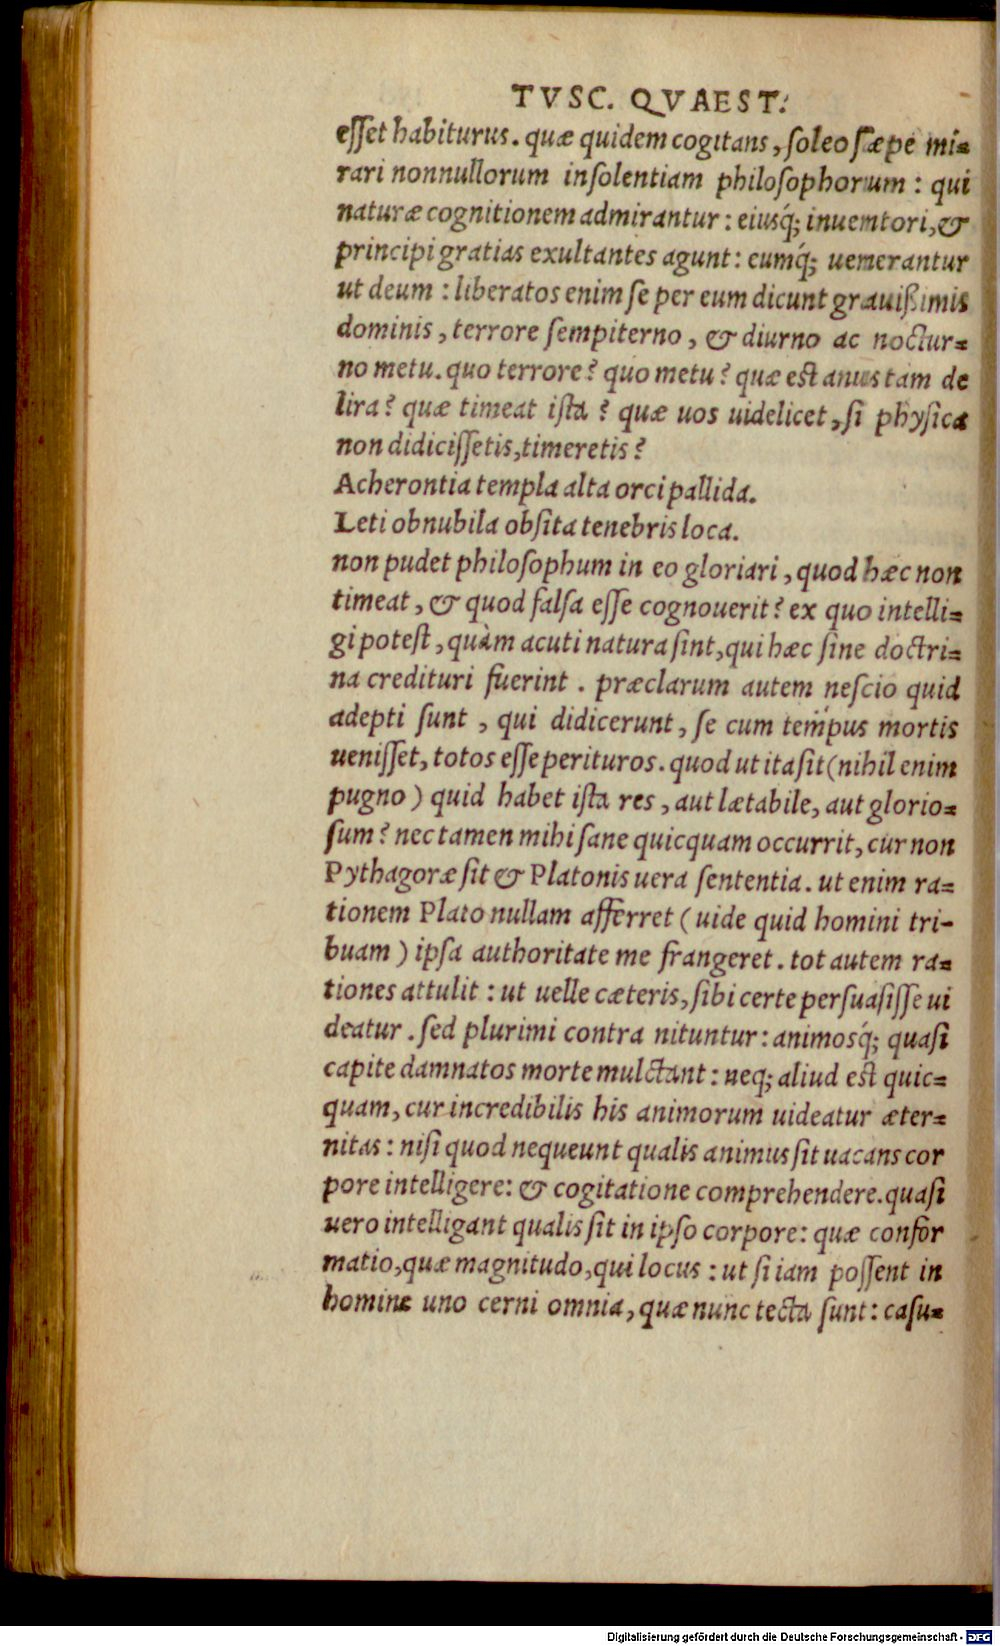 TVSC. QVAEST.
eſſet habiturus. quæ quidem cogitans, ſoleo ſæpe mi=
rari nonnullorum inſolentiam philoſophorum : qui
naturæ cognitionem admirantur : eiusq́; inuentori, &
principi gratias exultantes agunt : eumq́; uenerantur
ut deum : liberatos enim ſe per eum dicunt grauißimis
dominis, terrore ſempiterno, & diurno ac noctur=
no metu. quo terrore? quo metu? quæ est anus tam de
lira? quæ timeat ista? quæ uos uidelicet, ſi phyſica
non didiciſſetis, timeretis?
Acherontia templa alta orci pallida.
Leti obnubila obſita tenebris loca.
non pudet philoſophum in eo gloriari, quod hæc non
timeat, & quod falſa eſſe cognouerit? ex quo intelli=
gi poteſt, quàm acuti natura ſint, qui hæc ſine doctri=
na credituri fuerint. præclarum autem neſcio quid
adepti ſunt, qui didicerunt, ſe cum tempus mortis
ueniſſet, totos eſſe perituros. quod ut ita ſit (nihil enim
pugno) quid habet ista res, aut lætabile, aut glorio=
ſum? nec tamen mihi ſane quicquam occurrit, cur non
Pythagoræ ſit & Platonis uera ſententia. ut enim ra=
tionem Plato nullam afferret (uide quid homini tri-
buam) ipſa authoritate me frangeret. tot autem ra=
tiones attulit : ut uelle cæteris, ſibi certe perſuaſiſſe ui
deatur. ſed plurimi contra nituntur : animosq́; quaſi
capite damnatos morte mulctant : neq; aliud est quic=
quam, cur incredibilis his animorum uideatur æter=
nitas : niſi quod nequeunt qualis animus ſit uacans cor
pore intelligere : & cogitatione comprehendere. quaſi
uero intelligant qualis ſit in ipſo corpore : quæ confor
matio, quæ magnitudo, qui locus : ut ſi iam poſſent in
homine uno cerni omnia, quæ nunc tecta ſunt : caſu=
Digitalisierung gefördert durch die Deutsche Forschungsgemeinschaft - DFG